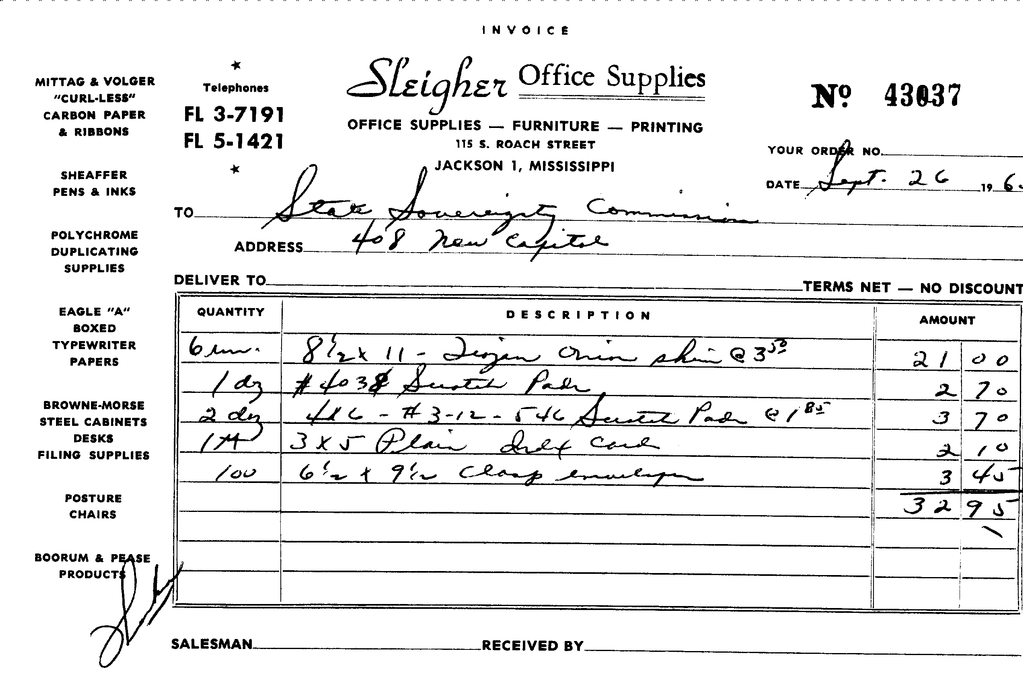 INVOICE
MITTAG & VOLGER
"CURL-LESS"
CARBON PAPER
& RIBBONS
SHEAFFER
PENS & INKS
POLYCHROME
DUPLICATING
SUPPLIES
EAGLE "A"
BOXED
TYPEWRITER
PAPERS
BROWNE-MORSE
STEEL CABINETS
DESKS
FILING SUPPLIES
POSTURE
CHAIRS
BOORUM & PEASE
PRODUCTS
Telephones
FL 3-7191
FL 5-1421
Sleigher Office Supplies
OFFICE SUPPLIES — FURNITURE — PRINTING
115 S. ROACH STREET
JACKSON 1, MISSISSIPPI
Nº 43037
YOUR ORDER NO.
DATE Sept. 26 196
TO State Sovereignty Commission
ADDRESS 408 New Capitol
DELIVER TO TERMS NET — NO DISCOUNT
QUANTITY DESCRIPTION AMOUNT
6 8½ x 11 - Onion skin @ 3 50 21 00
1 dz # 4038 Scratch Pads 2 70
2 doz 4x6 - # 3-12-546 Scratch Pads @ 1 85 3 70
1M 3 x 5 Plain Index Card 2 10
100 6½ x 9½ Clasp envelopes 3 45
32 95
SALESMAN RECEIVED BY